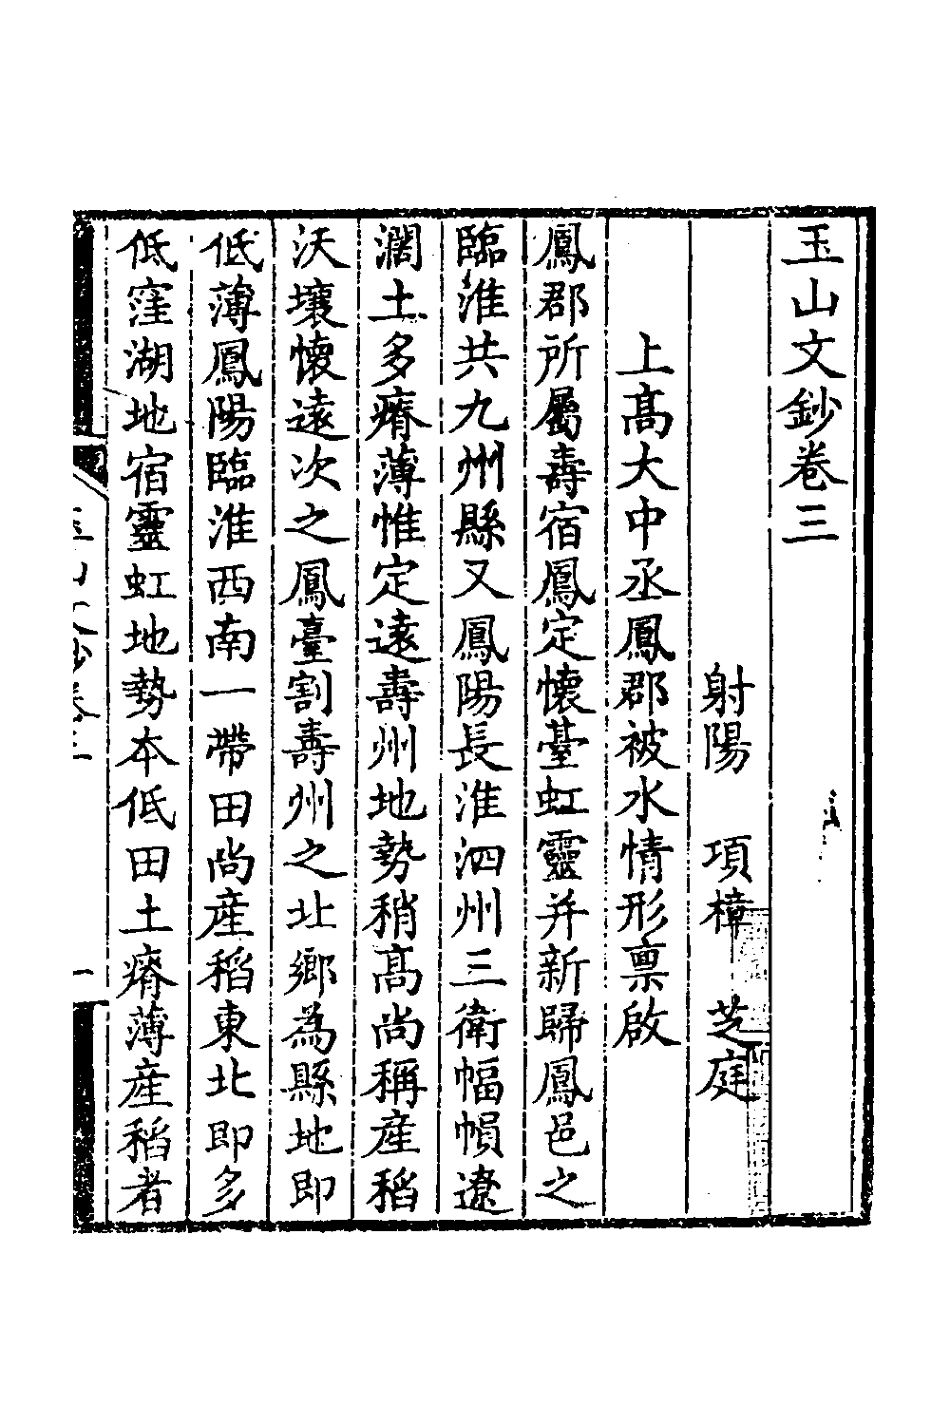 玉山文鈔卷三
射陽 項樟 芝庭
上高大中丞鳳郡被水情形禀啟
鳳郡所屬壽宿鳳定懷臺虹靈并新歸鳳邑之
臨淮共九州縣又鳳陽長淮泗州三衛幅幀遼
濶土多瘠薄惟定遠壽州地勢稍高尚稱産稻
沃壤懷遠次之鳳臺割壽州之北鄉為縣地即
低薄鳳陽臨淮西南一帶田尚産稻東北即多
低窪湖地宿靈虹地勢本低田土瘠薄産稻者